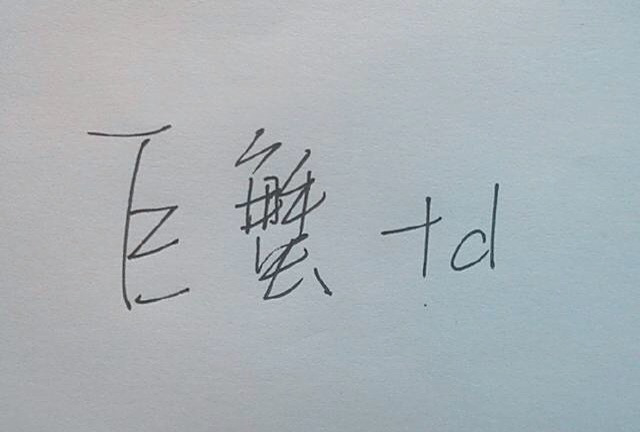 巨蟹 td